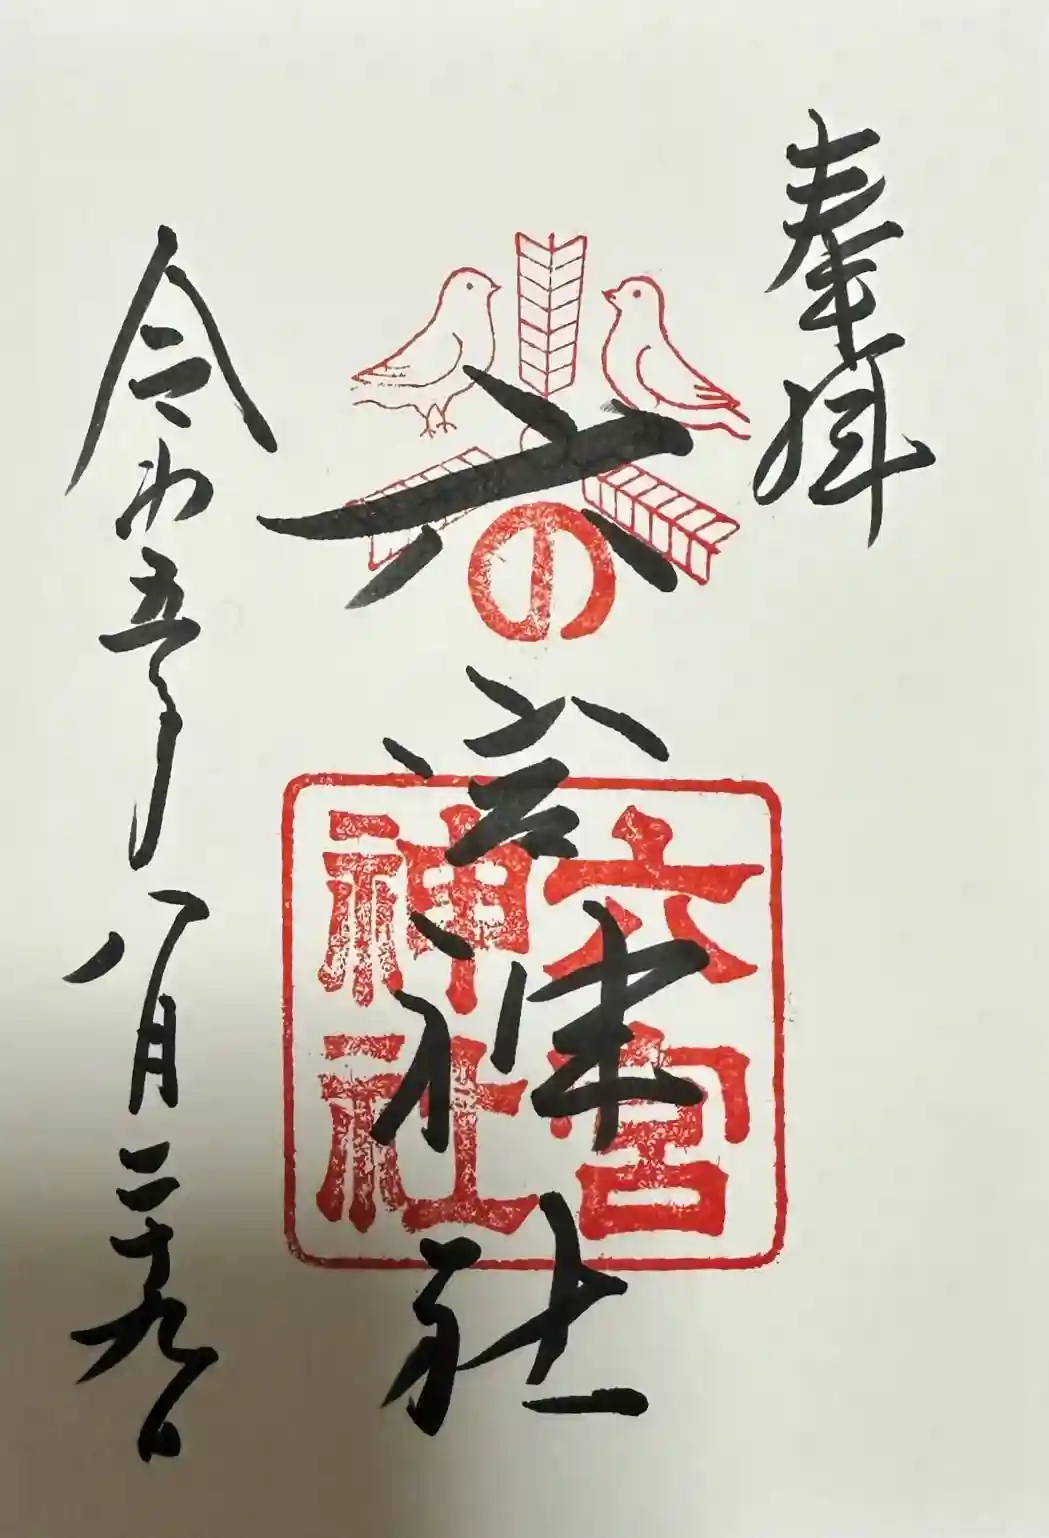 奉拝
六の宮神社
六宮神社
令和五年八月二十九日